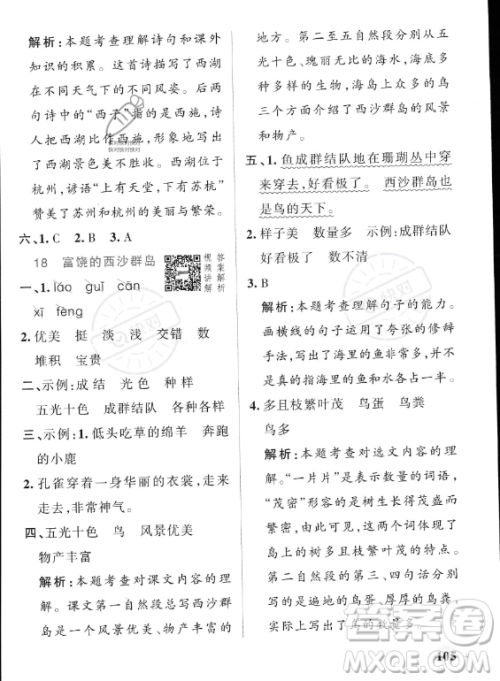 解析：本题考查理解诗句和课外
知识的积累。这首诗描写了西湖
在不同天气下的不同风姿。后两
句诗中的“西子”指的是西施，
人们把西湖比作西施，形象地写
出了西湖景色的美丽。西湖位于
杭州，谚语“上有天堂，下有苏杭”
赞美了苏州和杭州的美丽与繁荣。
六、1. C 2. B 3. A
18 富饶的西沙群岛
视频讲解
答案解析
一、1. láo guī cān
xī fèng
2. 优美 挺 淡 浅 交错 数
堆积 宝贵
二、示例：成结 光色 种样
五光十色 成群结队 各种各样
三、示例：1. 低头吃草的绵羊 奔跑
的小鹿
2. 孔雀穿着一身华丽的衣裳，走来
走去，非常神气。
四、五光十色 鸟 风景优美
物产丰富
解析：本题考查对课文内容的理
解。课文第一自然段总写西沙群
岛是一个风景优美、物产丰富的
地方。第二至五自然段从五
光十色、瑰丽无比的海水，海底
多种多样的生物，海岛上众多鸟
三个方面介绍了西沙群岛的风景
和物产。
五、1. 鱼成群结队地在珊瑚丛中穿
来穿去，好看极了。 西沙群岛也
是鸟的天下。
2. 样子美 数量多 示例：好看
好看极了 数不清
3. B
解析：本题考查理解句子的能力。
画横线的句子运用了夸张的修辞手
法，写出了海里的鱼非常多，并不
是真的指海里的鱼和水各占一半。
4. 多且枝繁叶茂 鸟蛋 鸟粪
鸟多
解析：本题考查对选文内容的理
解。“一片片”是表示数量的词语，
“茂密”形容的是草木茂盛而
繁密，由此可知，这句话写出了
岛上的树多且枝繁叶茂的特点。
第二自然段的第三、四句话分别
写的是遍地的鸟蛋、厚厚的鸟粪，
实际上写出了鸟数量多。
105
答案圈
MXQE.COM